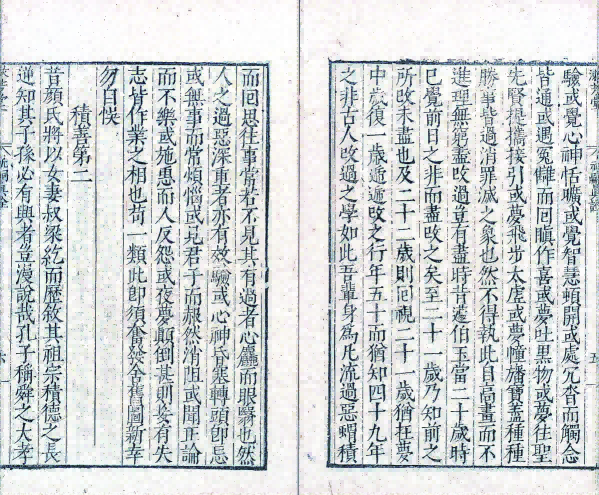 驗或覺心神恬曠或覺智慧頓開或處冗沓而觸念
皆通或遇冤讎而回瞋作喜或夢吐黑物或夢往聖
先賢提攜接引或夢飛步太虛或夢幢旛寶蓋種種
勝事皆過消罪滅之象也然不得執此自高畫而不
進理無窮盡改過豈有盡時昔蘧伯玉當二十歲時
已覺前日之非而盡改之矣至二十一歲乃知前之
所改未盡也及二十二歲則回視二十一歲猶在夢
中歲復一歲遞遞改之行年五十而猶知四十九年
之非古人改過之學如此吾輩身爲凡流過惡蝟積
而回思往事常若不見其有過者心麤而眼翳也然
人之過惡深重者亦有效驗或心神昏塞轉頭即忘
或無事而常煩惱或見君子而赧然消阻或聞正論
而不樂或施惠而人反怨或夜夢顛倒甚則妄有失
志皆作業之相也茍一類此即須奮發舍舊圖新幸
勿自悮
積善第二
昔顏氏將以女妻叔梁紇而歷敘其祖宗積德之長
逆知其子孫必有興者豈漫說哉孔子稱舜之大孝